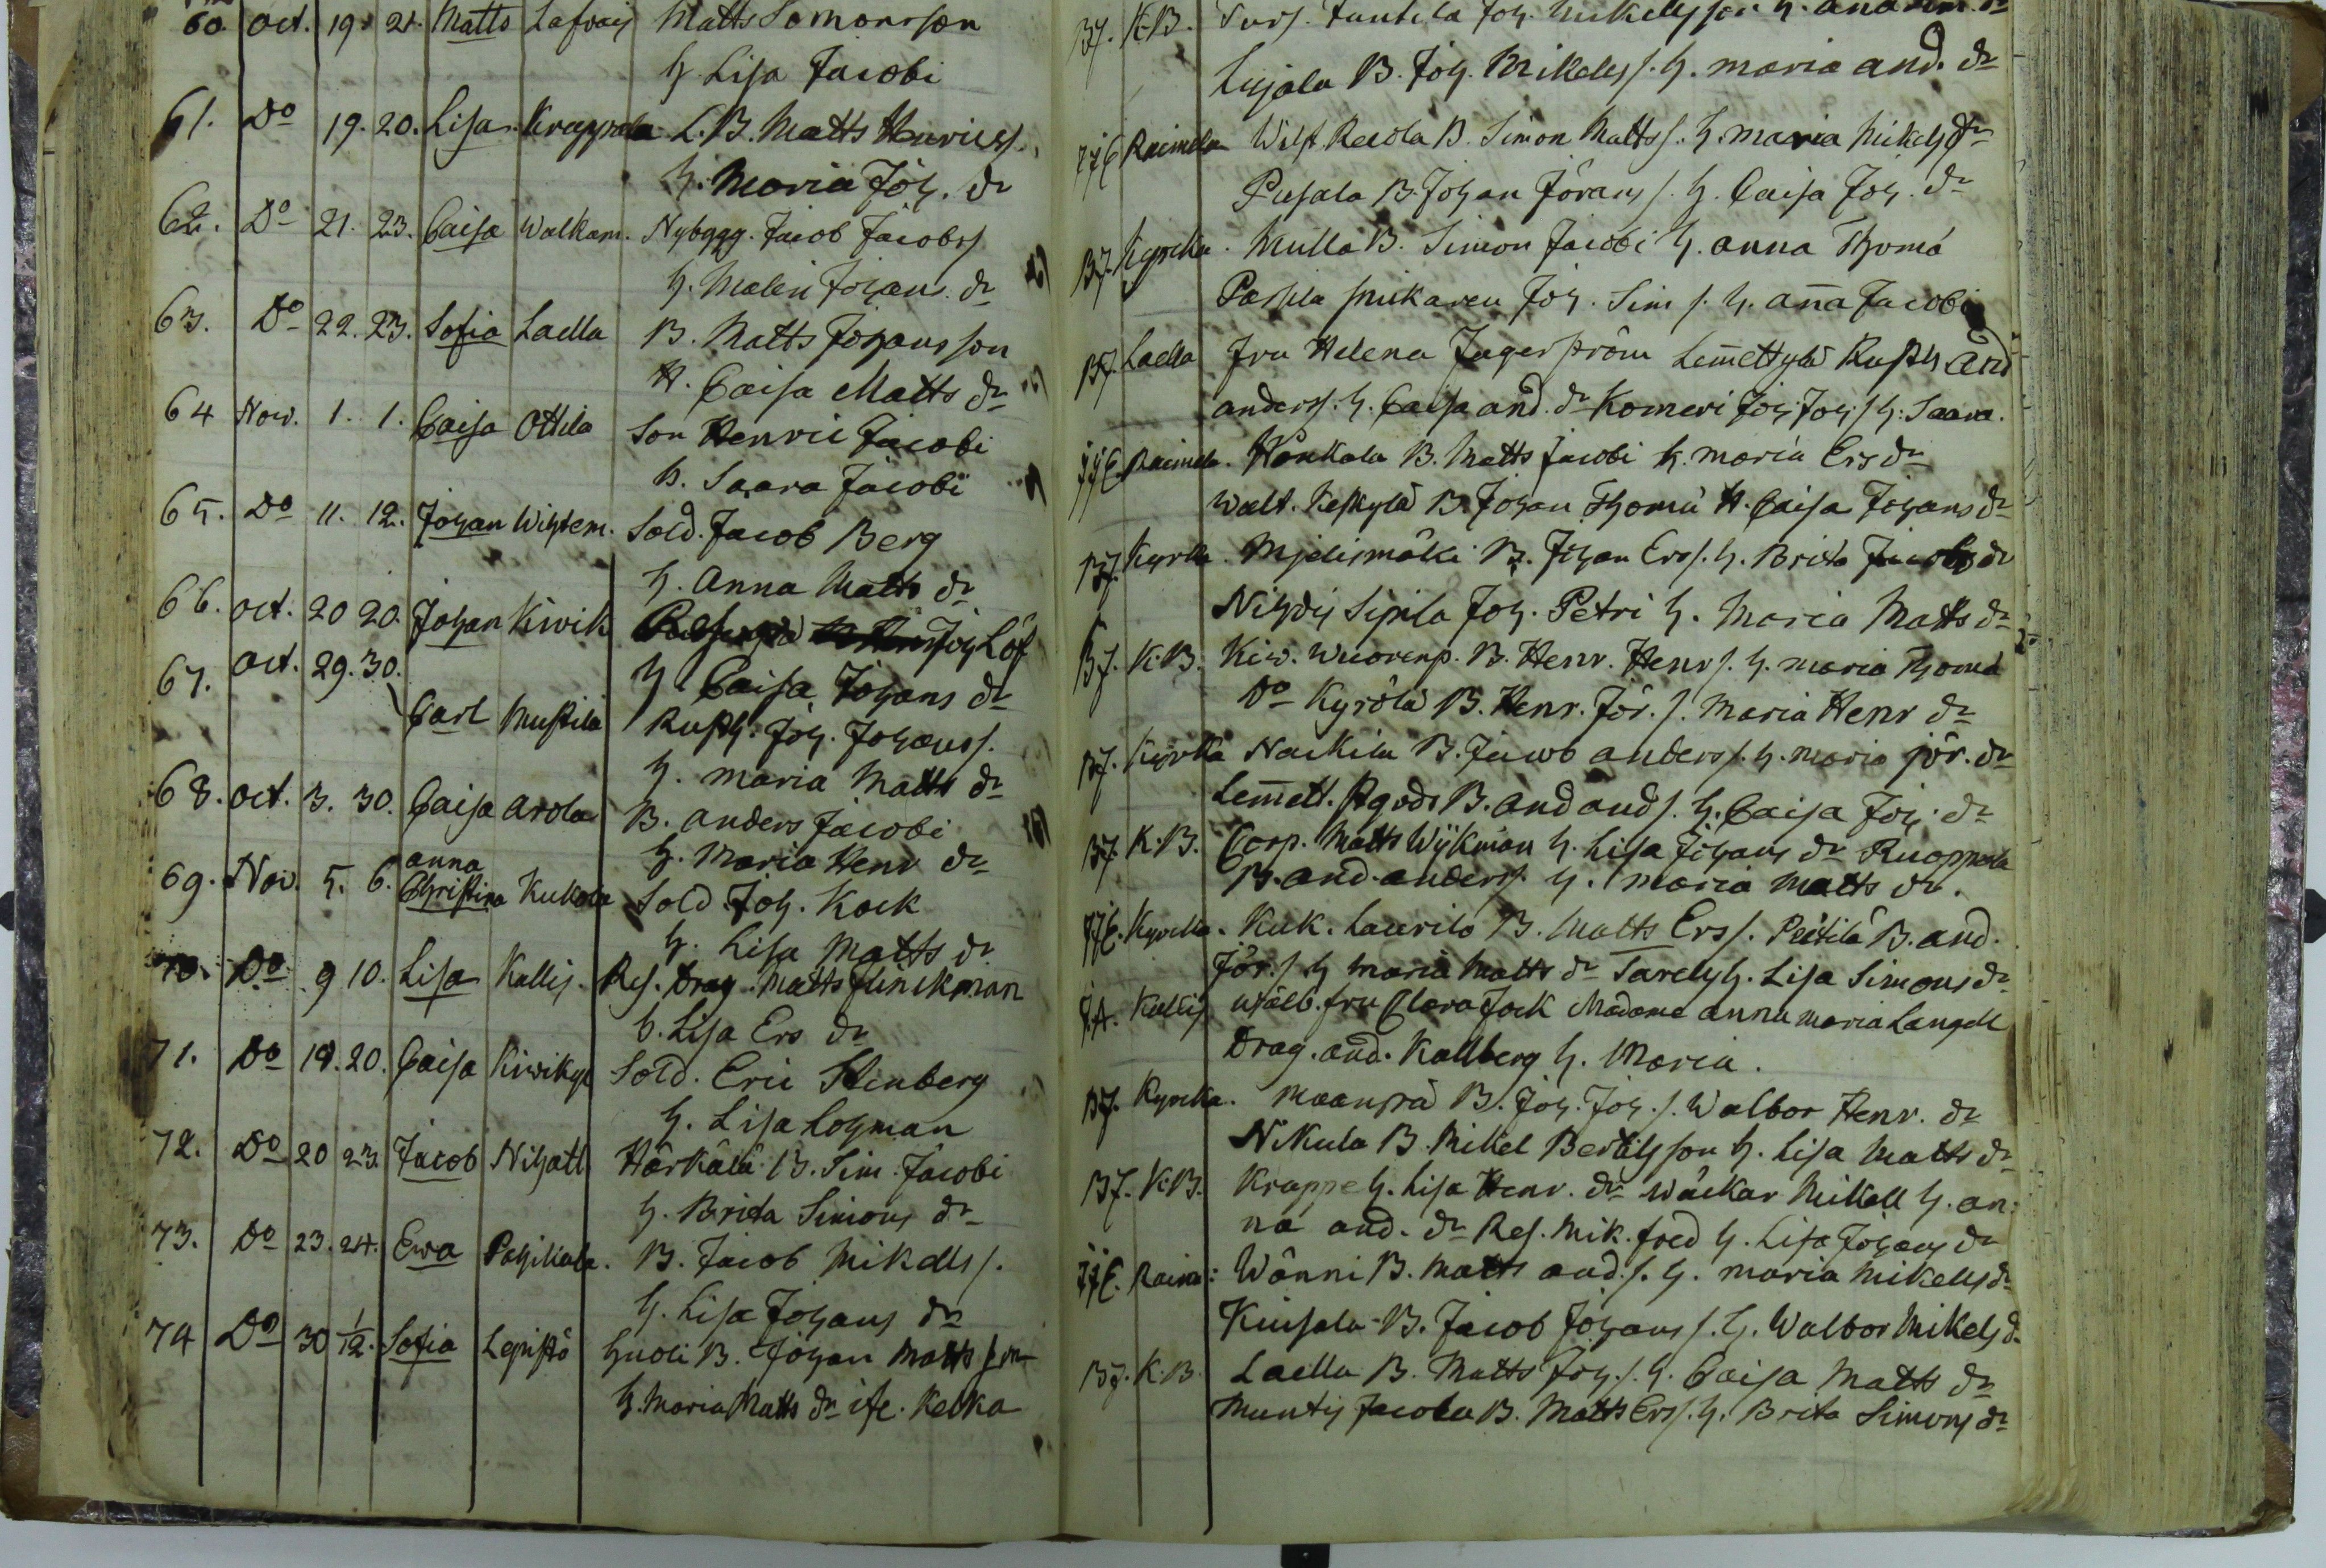 60. Oct. 19. 21. Matts Lafvais Matts Somonsson
H. Lisa Jacobi
61. Do 19. 20. Lisa Krappala L.B. Matts Henricss.
H. Maria Joh. dr
62. Do 21. 23. Caisa Walkam. Nybygg. Jacob Jacobss
H. Malin Johans. dr
63. Do 22. 23. Sofia Laella B. Matts Johansson
H. Caisa Matts dr
64 Nov. 1. 1. Caisa Ottila Son Henric Jacobi
H. Saara Jacobi
65. Do 11. 12. Johan Wihtem. Sold. Jacob Berg
H. Anna Matts dr
66. Oct. 20 20. Johan Kiwik Joh Löf
H. Caisa Johans dr
67. Oct. 29. 30. Carl Mustila Rusth. Joh. Johanss.
H. Maria Matts dr
68. Oct. 3. 30. Caisa Arola B. Anders Jacobi
H. Maria Henr dr
69. Nov. 5. 6. Anna Christina Kukola Sold. Joh. Kock
H. Lisa Matts dr
70. Do 9 10. Lisa Kallis. Res. Drag. Matts Flinckman
H. Lisa Ers dr
71. Do 19. 20. Caisa Kiwikyl Sold. Eric Stenberg
H. Lisa Lohman
72. Do 20 23. Jacob Nihatt Härkälä B. Sim. Jacobi
H. Brita Simons dr
73. Do 23. 24. Ewa Pahikala. B. Jacob Mikells s.
H. Lisa Johans dr
74 Do 30 1/12. Sofia Lepistö Huoli B. Johan Matts son
H. Maria Matts dr Kelka
B.J. K.B. Joh. Mikellsson H.
Lujala B. Joh. Mikells s. H. Maria And. dr
Raimela Wilst B. Simon Matts s. H. Maria Mikels dr
Pusala B. Johan Jörans s. H. Caisa Joh. dr
B.J. Kyrcka. Mulla B. Simon Jacobi H. Anna Thomä
Joh. Sim s. H. Aña Jacobi
B.J. Laella Fru Helena Jägerström Lem̄ettylä Rusth And
anders s. H. Caisa And. dr Komeri Joh. Joh. s H. Saara.
Raimela. Hönkala B. Matts Jacobi H. Maria Ers dr
Walt. Keskylä B. Johan Thomä H. Caisa Johans dr
B.J. Kyrka. Mjelismäki B. Johan Ers s. H. Brita Jacobs dr
Sipila Joh. Petri H. Maria Matts dr
B.J. K.B. Kiw. Wuorenp. B. Henr. Henr s. H. Maria Thomä
Do Kyrölä B. Henr. Jör. s. Maria Henr dr
B.J. Kyrka Naskila B. Jacob Anders s. H. Maria Jör. dr
Lem̄ett. B. And And s. H. Caisa Joh. dr
B.J. K.B. Corp. Matts Wijkman H. Lisa Johans dr Ruoppala
B. And. Anders s. H. Maria Matts dr.
Kyrcka. Kuk. Laurila B. Matts Ers s. Peltilä B. And.
Jör. s H Maria Matts dr H. Lisa Simons dr
Kallis Fru Clara Fock Madame Anna Maria Langell
Drag. And. Kallberg H. Maria.
B.J. Kyrcka. Maanpä B. Joh. Joh. s. Walbor Henr. dr
Nikula B. Mikel Bertils son H. Lisa Matts dr
B.J. K.B. Krappe H. Lisa Henr. dr Wäckar Mikell H. An:
na And. dr Res. Mik. Fred H. Lisa Johans dr
Raima: Wänni B. Matts And. s. H. Maria Mikells dr
Kuisala B. Jacob Johans s. H. Walbor Mikels d.
B.J. K.B. Laella B. Matts Joh. s. H. Caisa Matts dr
Muntis Jacola B. Matts Ers s. H. Brita Simons dr